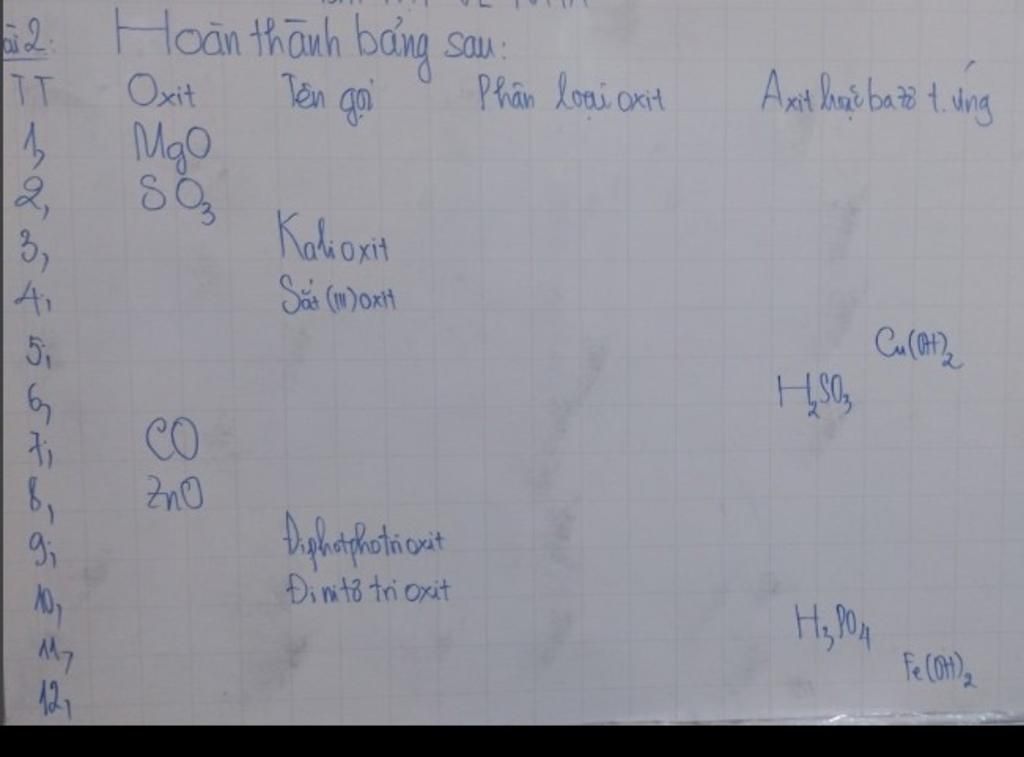 ài 2: Hoàn thành bảng sau:
TT Oxit Tên gọi Phân loại oxit Axit hoặc bazơ t.ứng
1, MgO
2, SO₃
3, Kali oxit
4, Sắt (III) oxit
5, Cu(OH)₂
6, H₂SO₃
7, CO
8, ZnO
9, Điphotpho tri oxit
10, Đi nitơ tri oxit
11, H₃PO₄
12, Fe(OH)₂